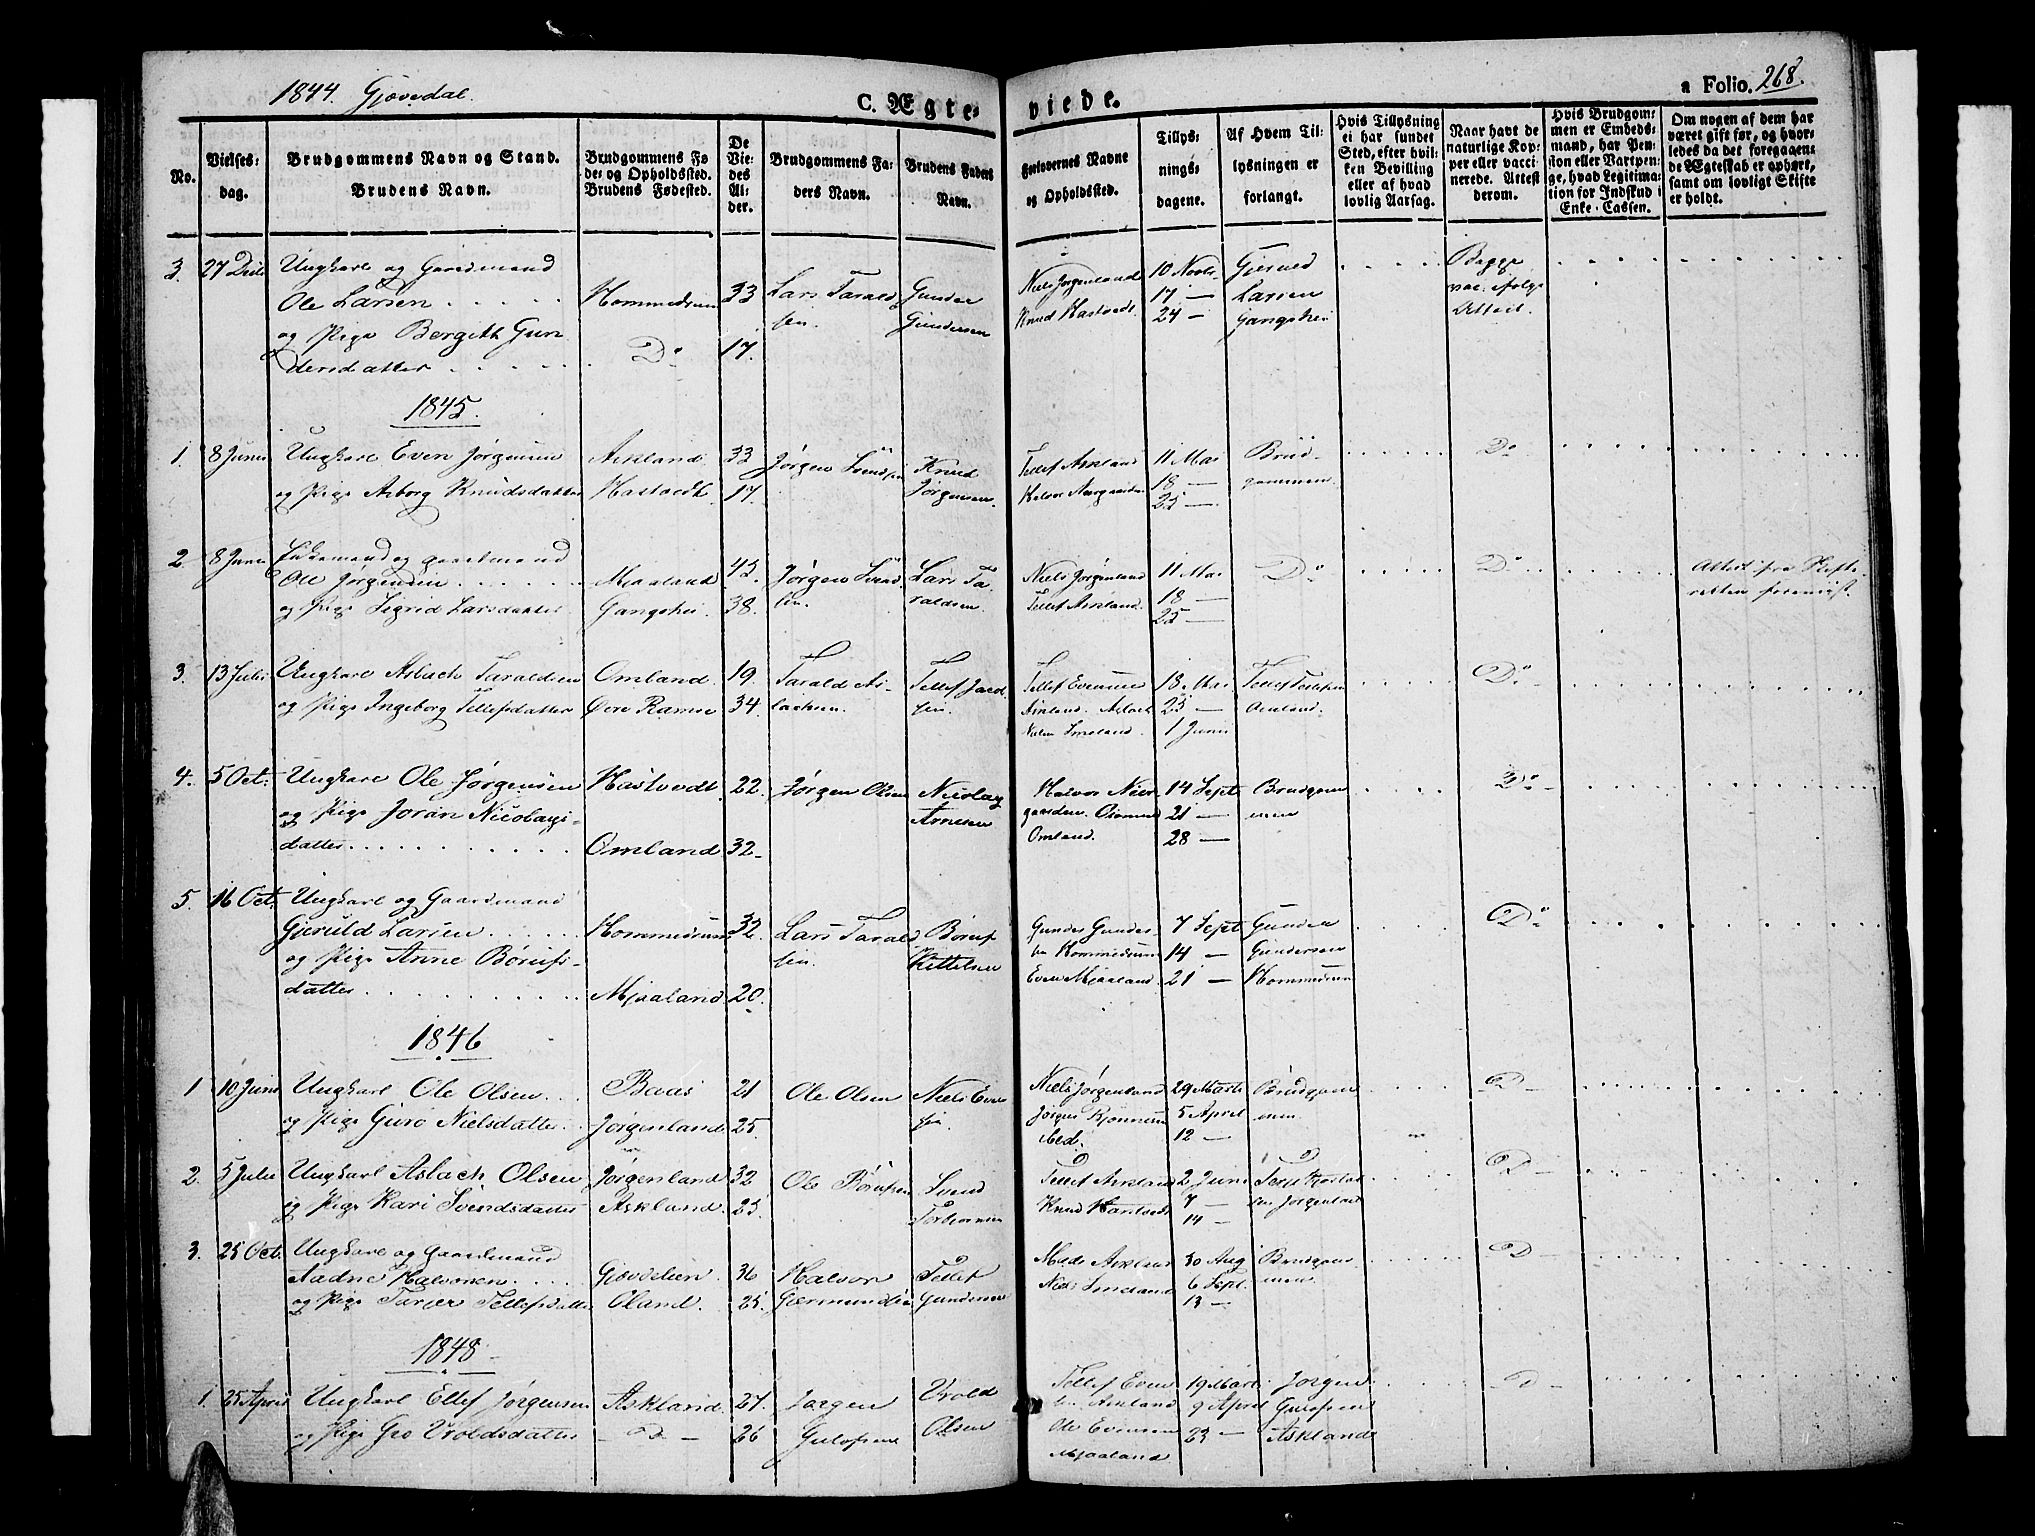 1844. Gjøvedal.
C. Ægteviede.
a Folio. 268.
No.
Vielsesdag.
Brudgommens Navn og Stand.
Brudens Navn.
Brudgommens Fødeog Opholdssted.
Brudens Fødested.
De Viedes Alder.
Brudgommens Faders Navn.
Brudens Faders Navn.
Forlovernes Navne og Opholdssted.
Tillysningsdagene.
Af Hvem Tillysningen er forlangt.
Hvis Tillysning ei har fundet Sted, efter hvilken Bevilling eller af hvad lovlig Aarsag.
Naar havt de naturlige Kopper eller vaccinerede. Attest derom.
Hvis Brudgommen er Embedsmand, har Pension eller Vartpenge, hvad Legitimation for Indskud i Enke-Cassen.
Om nogen af dem har været gift før, og hvorledes da det foregaaende Ægteskab er ophørt, samt om lovligt Skifte er holdt.
3. 27 Ungkarl og Gaardmand
Ole Larsen Hommedrum 33 Lars Taraldsen. Gunder Gundersen
og Pige Bergith Gundersdatter Do 17.
Niels Jørgenland Knud Hastvedt 10 Novb 17 — 24 —
Larsen
Begge vac. ifølge Attest.
1845.
1. 8 Juni Ungkarl Even Jørgensen Askland 33 Jørgen Svendsen Knud Jørgensen.
og Pige Asborg Knudsdatter Hastvedt. 17.
Tellef Askland 11 Mai 18 — 25 — Brudgommen Do
2 8 Juni Enkemand og gaardmand
Ole Jørgensen Mjaaland 43. Jørgen Svendsen. Lars Taraldsen.
og Pige Sigrid Larsdatter Gangshei. 38.
Niels Jørgenland Tellef Askland. 11 Mai 18 — 25 — Do Do Attest fra Skifteretten
3. 13 Juli Ungkarl Aslach Taraldsen Omland. 19. Tarald Aslachsen.
og Pige Ingeborg Tellefsdatter Øvre Ramse 34.
Tellef Evensen Askland. Aslach Nielsen Smeland. 18. Mai 25 — 1 Juni Do
4. 5 Oct. Ungkarl Ole Jørgensen Hastvedt 22. Jørgen Olsen Nicolay
og Pige Joran Nicolaysdatter Omland 32.
Halvor Omland. 14 Sept 21 — 28 — Brudgommen Do
5. 16 Oct. Ungkarl og Gaardmand
Gjeruld Larsen Hommedrum 32. Lars Taraldsen. Børuf Kittelsen
og Pige Anne Børufsdatter Mjaaland 20.
Gunder Gundersen Hommedrum Even Mjaaland. 7 Sept 14 — 21 — Gunder Gundersen Hommedrum Do
1846
1 10 Juni Ungkarl Ole Olsen Baas 21 Ole Olsen Niels Evensen.
og Pige Guro Nielsdatter Jørgenland 25.
Niels Jørgenland 29 Marts 5 April 12 — Brudgommen. D
2. 5 Juli Ungkarl Aslach Olsen Jørgenland 32 Ole Børufsen Svend
og Pige Kari Svendsdatter Askland. 25.
Tellef Askland Knud Hastvedt 2 Juni 7 — 14 — D
3. 25 Oct. Ungkarl og Gaardmand
Aadne Halvorsen Gjøvdelien. 36 Halvor Tellef Gundersen
og Pige Tarjer Tellefsdatter Oland. 25.
Mads Askland Niels Smeland 30 Aug 6 Sept. 13 — Brudgommen. D
1848
1. 25 April Ungkarl Ellef Jørgensen Askland. 27. Jørgen Vrold Olsen
og Pige Gro Vroldsdatter D 26
Tellef Evensen Askland Ole Evensen Mjaaland 19 Mart. 9 April 23 — Jørgen Askland D